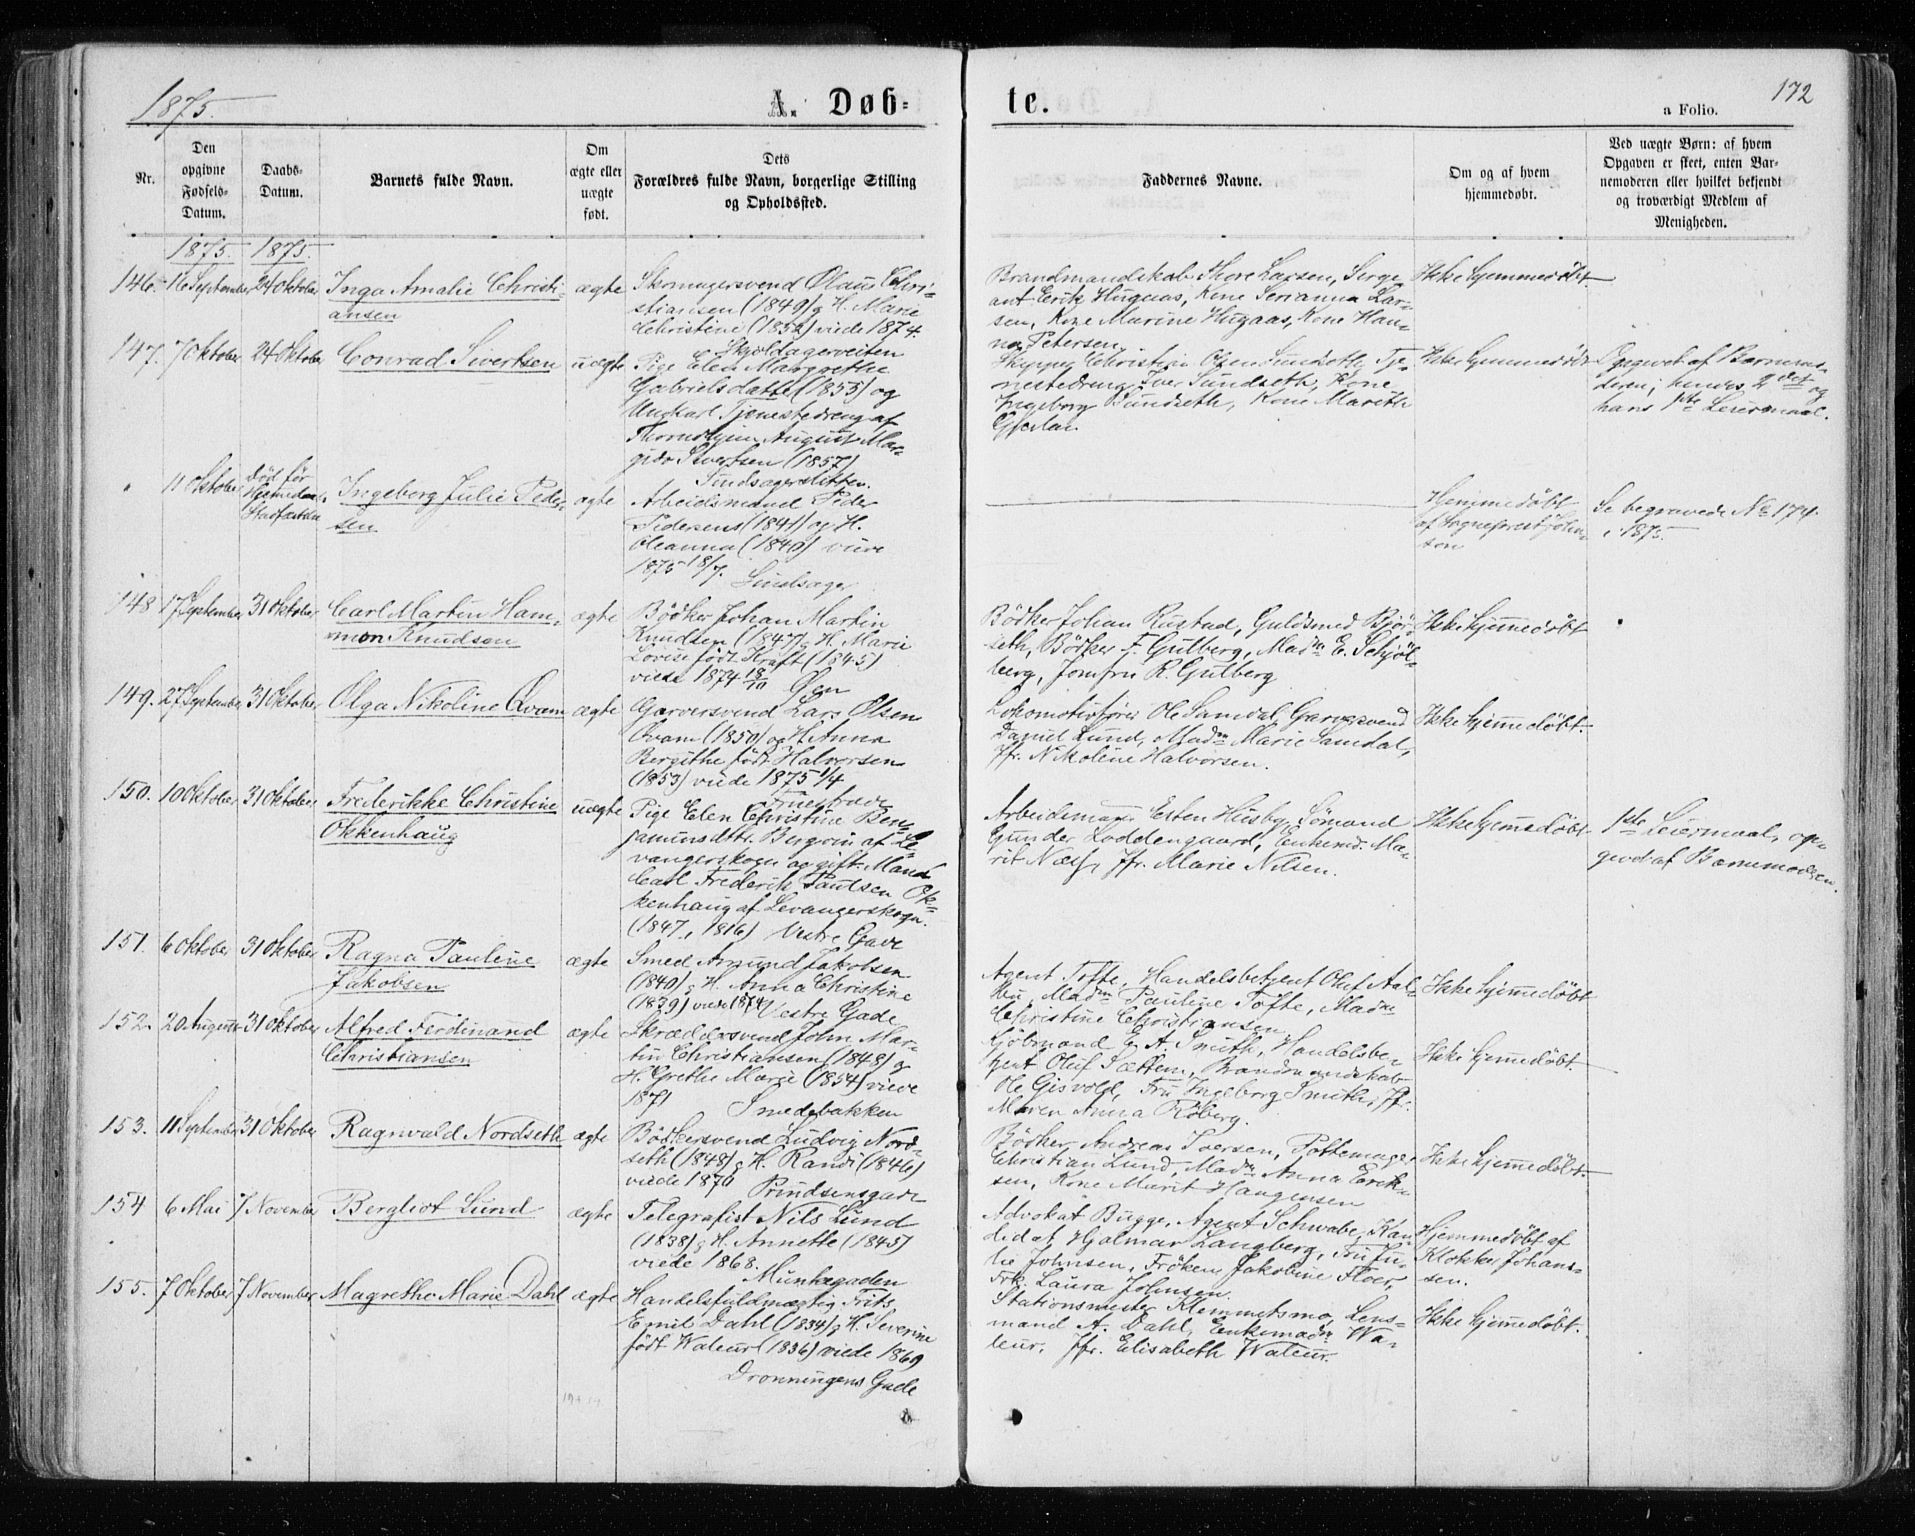 1875.
A. Døb=
te.
172
a Folio.
Nr.
Den opgivne Fødsels-Datum.
Daabs-Datum.
Barnets fulde Navn.
Om ægte eller uægte født.
Dets Forældres fulde Navn, borgerlige Stilling og Opholdssted.
Faddernes Navne.
Om og af hvem hjemmedøbt.
Ved uægte Børn: af hvem Opgaven er skeet, enten Barnemoderen eller hvilket bekjendt og troværdigt Medlem af Menigheden.
1875. 1875.
146. 16 September 24 Oktober Inga Amalie Christi-
ansen
ægte
Skomagersvend Olaus Chri-
stiansen (1849) g H. Marie
Christine (1852) viede 1874.
Skjoldagerveiten
Brandmandskab Thore Larsen, Serge-
ant Erik Hugaas, Kone Serianna Lar-
sen, Kone Marine Hugaas, Kone Han-
na Petersen.
Ikke hjemmedøbt.
147. 7 Oktober 24 Oktober Conrad Sivertsen uægte
Pige Elen Margrethe
Gabrielsdatte (1853) og
Ungkarl Tjenestedreng af
Throndhjem August Mar-
Sivertsen (1857)
Skipper Christian Olsen Tje-
nestedreng Iver Sundseth, Kone
Ingeborg Sundseth, Kone Marith
Ikke hjemmedøbt
Opgivet af Barnemo-
deren; hendes 2det og
hans 1ste Leiermaal.
" 11 Oktober Død før
Ingeborg Julie Peder-
sen
ægte
Arbeidsmand Peder
Pedersens (1841) og H.
Oleanna (1840) viede
1875 18/7.
Hjemmedøbt
af Sognepræst John-
son
Se begravede No 174.
i 1875.
148 17 September 31 Oktober Carl Martin Ham-
mon Knudsen
ægte
Bödker Johan Martin
Knudsen (1847) g H. Marie
Lovise født Kraft (1845)
viede 1874 18/10 Øen
Bödker Johan Rustad, Guldsmed Björ-
seth, Bödker F. Gulberg, Madm E. Schjöl-
berg, Jomfru R. Gulberg
Ikke hjemmedøbt
149. 27 September 31 Oktober Olga Nikoline Qvam ægte
Garversvend Lars Olsen
Qvam (1850) og H. Anna
Bergithe født Halvorsen
(1853) viede 1875 1/4
Lokomotivfører Ole Samdal, Garversvend
Daniel Lund, Madm Marie Samdal,
Jfr. Nikoline Halvorsen.
Ikke hjemmedøbt.
150. 10 Oktober 31 Oktober Frederikke Christine
Okkenhaug
uægte
Pige Elen Christine Ben-
jaminsdtr. Bergvin af Le-
vangerskogn og gift Mand
Carl Frederik Paulsen Ok-
kenhaug af Levangerskogn.
(1847, 1816) Vestre Gade
Arbeidsmand Esten Husby, Sømand
Gunder Loddengaard, Enkemd. Ma-
rit Næss, Jfr. Marie Nilsen.
Ikke hjemmedøbt
1ste Leiermaal, op-
givet af Barnemoderen.
151. 6 Oktober 31 Oktober Ragna Pauline
Jakobsen
ægte
Smed Amund Jakobsen
(1840) g H. Anna Christine
(1839) viede 1874 Vestre Gade
Agent Tofte, Handelsbetjent Oluf Aal-
Madm Pauline Tofte, Madm
Christine Christiansen
Ikke hjemmedøbt
152. 20 August 31 Oktober Alfred Ferdinand
Christiansen
ægte
Skræddersvend John Mar-
tin Christiansen (1848) g
H. Grethe Marie (1854) viede
1871 Smedbakken
Kjöbmand E. A. Smith, Handelsbe-
tjent Oluf Sættem, Brandmandskab
Ole Gisvold, Fru Ingeborg Smith, Jfr.
Maren Anna Röberg.
Ikke hjemmedøbt.
153. 11 September 31 Oktober Ragnvald Nordseth ægte
Bödkersvend Ludvig Nord-
seth (1848) g H. Randi (1846)
viede 1870 Prindsensgade
Bödker Andreas Iversen, Pottemager
Christian Lund, Madm Anna Erik-
sen, Kone Marit Haugensen
Ikke hjemmedøbt
154 6 Mai 7 November Bergliot Lund ægte
Telegrafist Nils Lund
(1838) g H. Annette (1845)
viede 1868.
Munkegaden
Advokat Bugge, Agent Schwabe, Kan-
didat Hjalmar Langberg, Fru Ju-
lie Johnsen, Fröken Jakobine Floer,
Frk. Laura Johnsen.
Hjemmedøbt af
Klokker Johans-
sen.
155. 7 Oktober 7 November Magrethe Marie Dahl ægte
Handelsfuldmægtig Frits
Emil Dahl (1834) g H. Severine
født Wateur (1836) viede 1869
Dronningens Gade
Stationsmester Klemmetsmo, Lens-
mand A. Dahl, Enkemadm Wa-
teur, Jfr. Elisabeth Wateur.
Ikke hjemmedøbt.